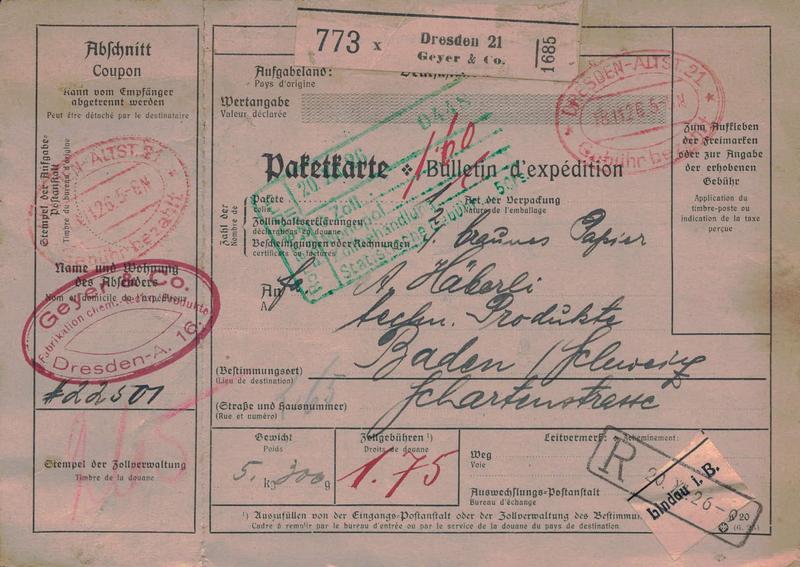 Abschnitt
Coupon
Kann vom Empfänger
abgetrennt werden
Peut être détaché par le destinataire
Stempel der Aufgabe-
Postanstalt
Timbre du bureau d'origine
-ALTST. 21
11.26.5-6N
Gebühr bezahlt
Name und Wohnung
des Absenders
Nom et domicile de l'expéditeur
Geyer & Co.
Fabrikation chem.-techn. Produkte
Dresden-A. 16.
#22501
265
Stempel der Zollverwaltung
Timbre de la douane
773 x
Dresden 21
Geyer & Co.
1685
Aufgabeland:
Pays d'origine
Wertangabe
Valeur déclarée
DRESDEN-ALTST. 21
18.11.26.5-6N
Gebühr bezahlt
Paketkarte
Bulletin d'expédition
1.60
Zahl der
Nombre de
Pakete
colis
Zollinhaltserklärungen
déclarations en douane
Bescheinigungen oder Rechnungen
certificats ou factures
Art der Verpackung
Nature de l'emballage
braunes Papier
Zoll
Stempel
Zollbehandlung
Statistische Gebühr
Zum Aufkleben
der Freimarken
oder zur Angabe
der erhobenen
Gebühr
Application du
timbre-poste ou
indication de la taxe
perçue
An
A
Fa. A. Häberli
techn. Produkte
Baden / Schweiz
Schartenstrasse
(Bestimmungsort)
(Lieu de destination)
(Straße und Hausnummer)
(Rue et numéro)
Gewicht
Poids
5. kg 300 g
Zollgebühren ¹)
Droits de douane
1.75
Leitvermerk:
Acheminement:
Weg
Voie
Auswechslungs-Postanstalt
Bureau d'échange
R
20. XI. 26-9
Lindau i. B.
¹) Auszufüllen von der Eingangs-Postanstalt oder der Zollverwaltung des
Cadre à remplir par le bureau d'entrée ou par le service de la douane du pays de destination.